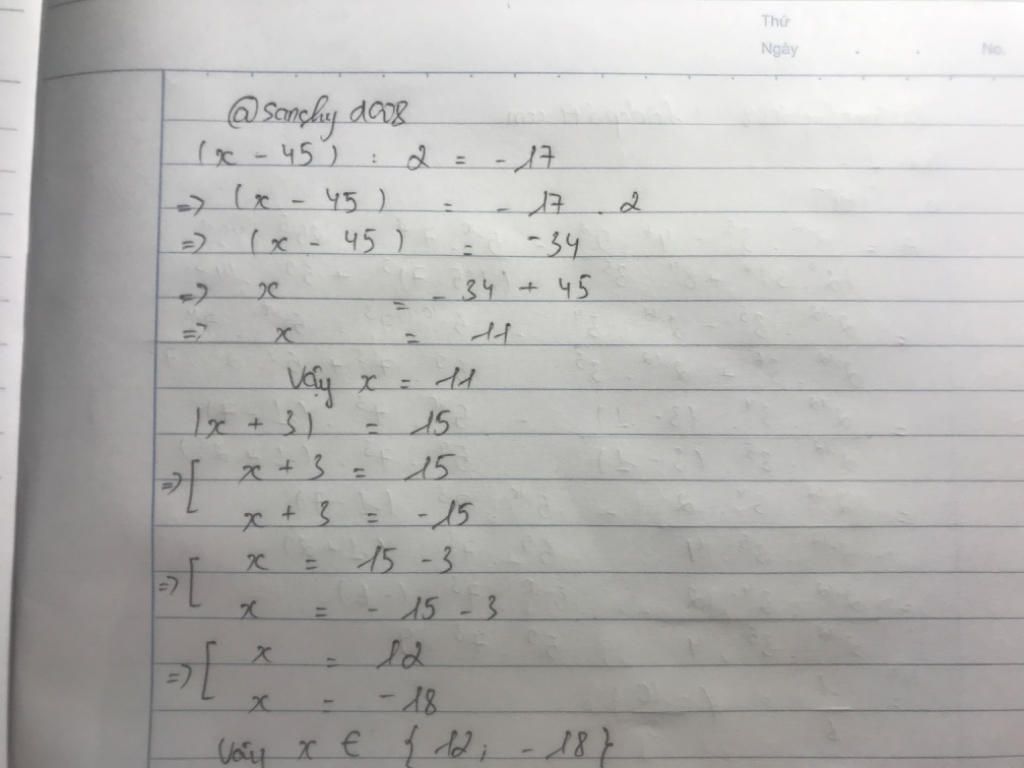 Thứ
Ngày . . No.
@sanchy d008
(x - 45) : 2 = - 17
=> (x - 45) = - 17 . 2
=> (x - 45) = -34
=> x = - 34 + 45
=> x = 11
Vậy x = 11
|x + 3| = 15
=> [ x + 3 = 15
x + 3 = -15
=> [ x = 15 - 3
x = - 15 - 3
=> [ x = 12
x = -18
Vậy x ∈ { 12 ; - 18 }